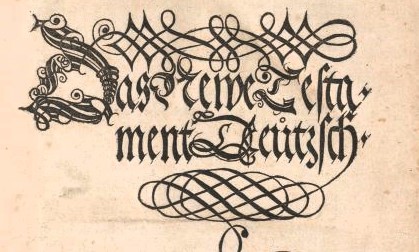 Das Newe Testa⸗
ment Deůtzsch·